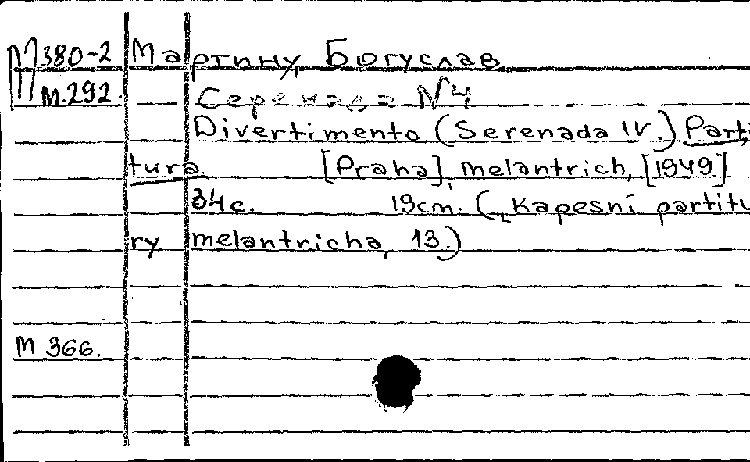 М 380-2 Мартину, Богуслав
М.292. Серенада №4
Divertimento (Serenada IV.) Parti-
tura. [Praha], Melantrich, [1949]
34с. 19cm. („Kapesní partitu-
ry Melantricha, 13.)
М 366.